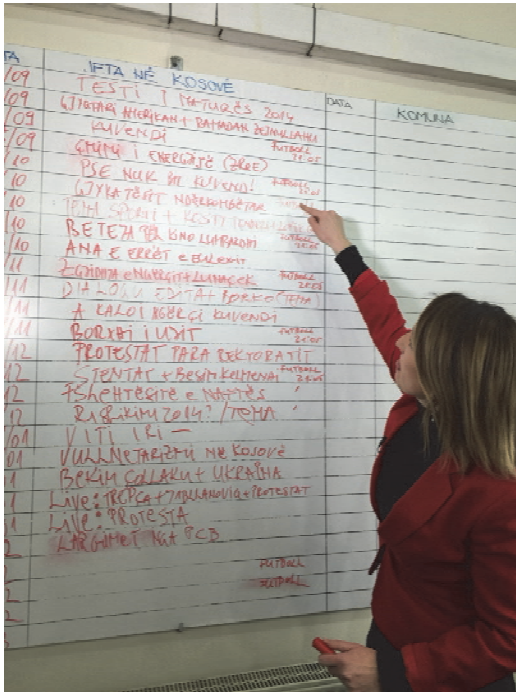 TA JETA NË KOSOVË DATA KOMUNA
/09 TESTI I MATURËS 2014
/09 GJYQTARI AMERIKAN I RAMADAN
/09 KUVENDI FUTBOLL 21:05
/09 ÇMIMI I ENERGJISË (ZRRE)
/10 PSE NUK KUVENDI FUTBOLL
/10 GJYKATËSIT NDËRKOMBËTAR
/10
/10 BETEJA PËR KINO LUMBARDHI FUTBOLL 21:05
/10 ANA E ERRËT e EULEXIT
/11 ZGJIDHJA e NGËRÇIT + LUNAÇEK FUTBOLL 21:05
/11 DIALOGU EDITA + BORKO TEMA
/11 A KALOI NGËRÇI KUVENDI
/11 BORXHI I UJIT FUTBOLL 21:05
/12 PROTESTAT PARA REKTORATIT
12 STENTAT + BESIM KELMENDI FUTBOLL 21:05
/12 FSHEHTËSITË e NAFTËS
12 RISJIKIMI 2014? / TEMA
/01 VITI I RI —
01 VULLNETARIZMI NË KOSOVË
1 BEKIM ÇOLLAKU + UKRAINA
1 LIVE: TREPÇA + JABLLANOVIQ + PROTESTAT
1 LIVE: PROTESTA
2 LARGIMET NGA PCB
FUTBOLL
2 FUTBOLL
2